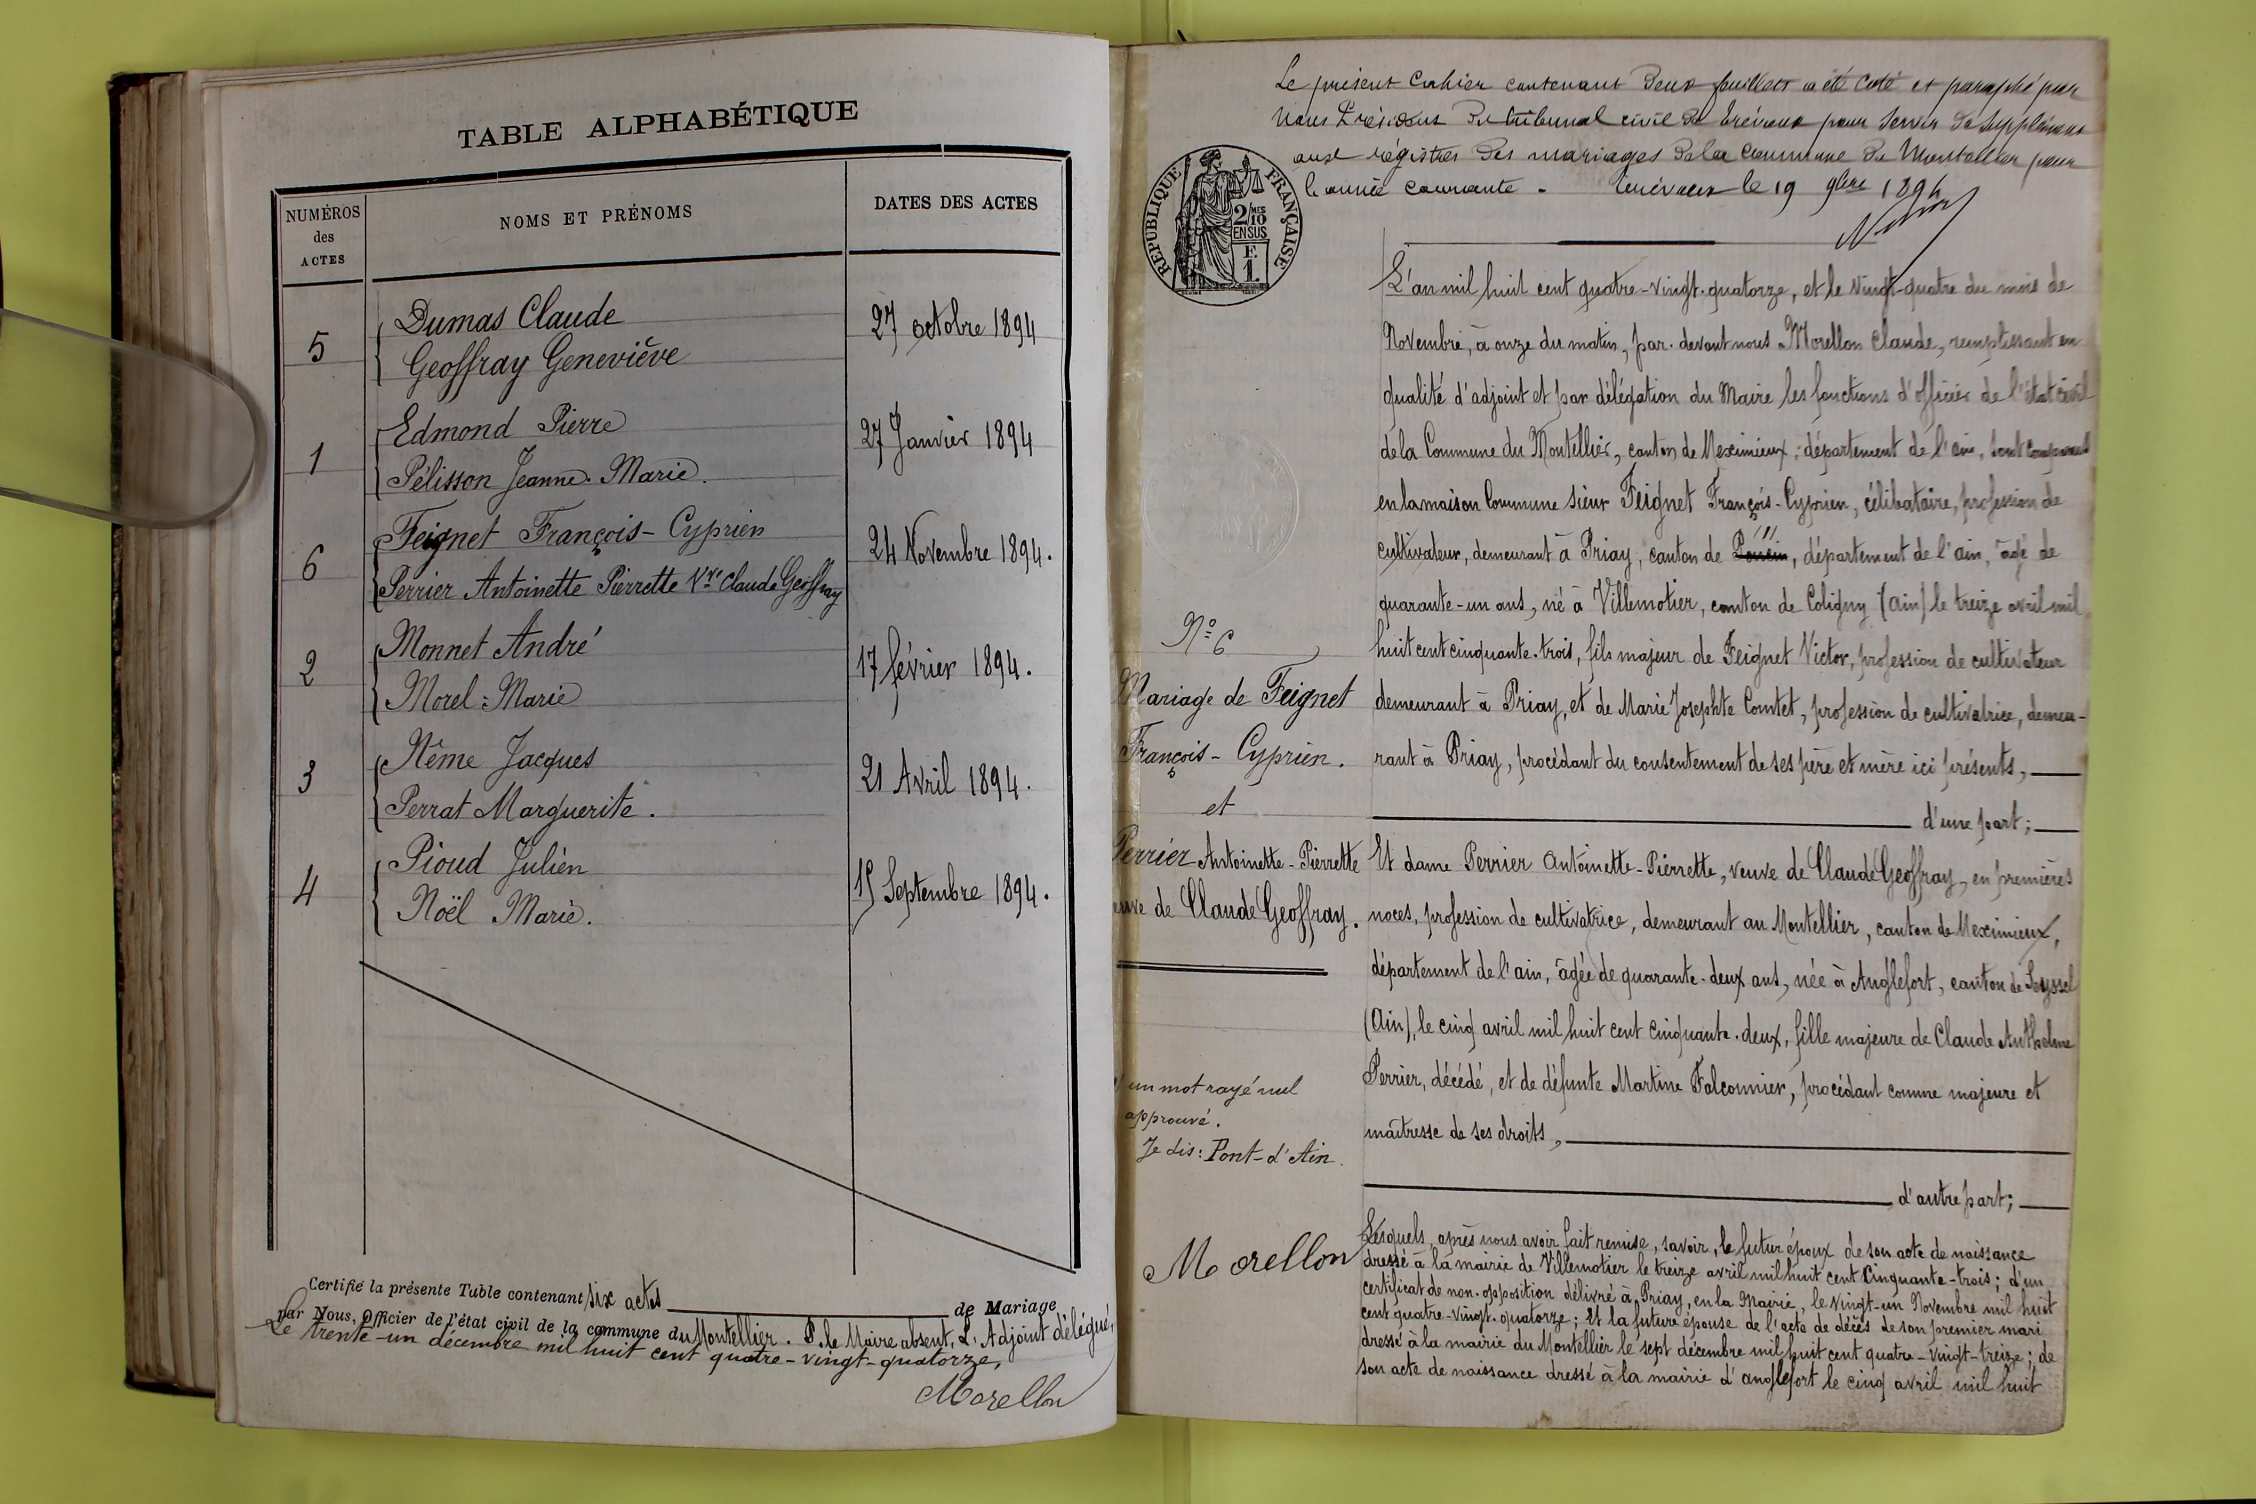 TABLE ALPHABÉTIQUE
NUMÉROS des ACTES
NOMS ET PRÉNOMS
DATES DES ACTES
5 Dumas Claude 27 octobre 1894
Geoffray Geneviève
1 Edmond Pierre 27 Janvier 1894
Pélisson Jeanne-Marie.
6 Feignet François-Cyprien 24 Novembre 1894.
Perrier Antoinette Pierrette Vve Claude Geoffray
2 Monnet André 17 février 1894.
Morel Marie
3 Nême Jacques 21 Avril 1894.
Perrat Marguerite.
4 Pioud Julien 15 Septembre 1894.
Noël Marie.
Certifié la présente Table contenant six actes de Mariage
par Nous, Officier de l'état civil de la commune du Montellier. P. le Maire absent, L'Adjoint délégué,
Le trente-un décembre mil huit cent quatre-vingt-quatorze,
Morellon
Le présent Cahier contenant deux feuillets a été coté et paraphé par
Nous Président du tribunal civil de Trévoux pour servir de supplément
aux régistres des mariages de la commune du Montellier pour
l'année courante. Trévoux le 19 9bre 1894
RÉPUBLIQUE FRANÇAISE
2/10 MES
EN SUS
F.
1.
L'an mil huit cent quatre-vingt-quatorze, et le vingt-quatre du mois de
Novembre, à onze du matin, par-devant nous Morellon Claude, remplissant en
qualité d'adjoint et par délégation du Maire les fonctions d'officier de l'état civil
de la Commune du Montellier, canton de Meximieux, département de l'ain, sont comparus
en la maison Commune sieur Feignet François-Cyprien, célibataire, profession de
cultivateur, demeurant à Priay, canton de Poncin, département de l'ain, âgé de
quarante-un ans, né à Villemotier, canton de Coligny (Ain) le treize avril mil
huit cent cinquante-trois, fils majeur de Feignet Victor, profession de cultivateur
demeurant à Priay, et de Marie Josephte Comtet, profession de cultivatrice, demeu-
rant à Priay, procédant du consentement de ses père et mère ici présents,
d'une part;
Et dame Perrier Antoinette-Pierrette, veuve de Claude Geoffray, en premières
noces, profession de cultivatrice, demeurant au Montellier, canton de Meximieux,
département de l'ain, âgée de quarante-deux ans, née à Anglefort, canton de Seyssel
(Ain), le cinq avril mil huit cent cinquante-deux, fille majeure de Claude Anthelme
Perrier, décédé, et de défunte Martine Falconnier, procédant comme majeure et
maîtresse de ses droits,
d'autre part;
Lesquels, après nous avoir fait remise, savoir, le futur époux de son acte de naissance
dressé à la mairie de Villemotier le treize avril mil huit cent cinquante-trois; d'un
certificat de non-opposition délivré à Priay, en la Mairie, le vingt-un Novembre mil huit
cent quatre-vingt-quatorze; Et la future épouse de l'acte de décès de son premier mari
dressé à la mairie du Montellier le sept décembre mil huit cent quatre-vingt-treize; de
son acte de naissance dressé à la mairie d'anglefort le cinq avril mil huit
No 6
Mariage de Feignet
François-Cyprien.
et
Perrier Antoinette-Pierrette
euve de Claude Geoffray.
un mot rayé nul
approuvé.
Je dis: Pont-d'Ain.
Morellon